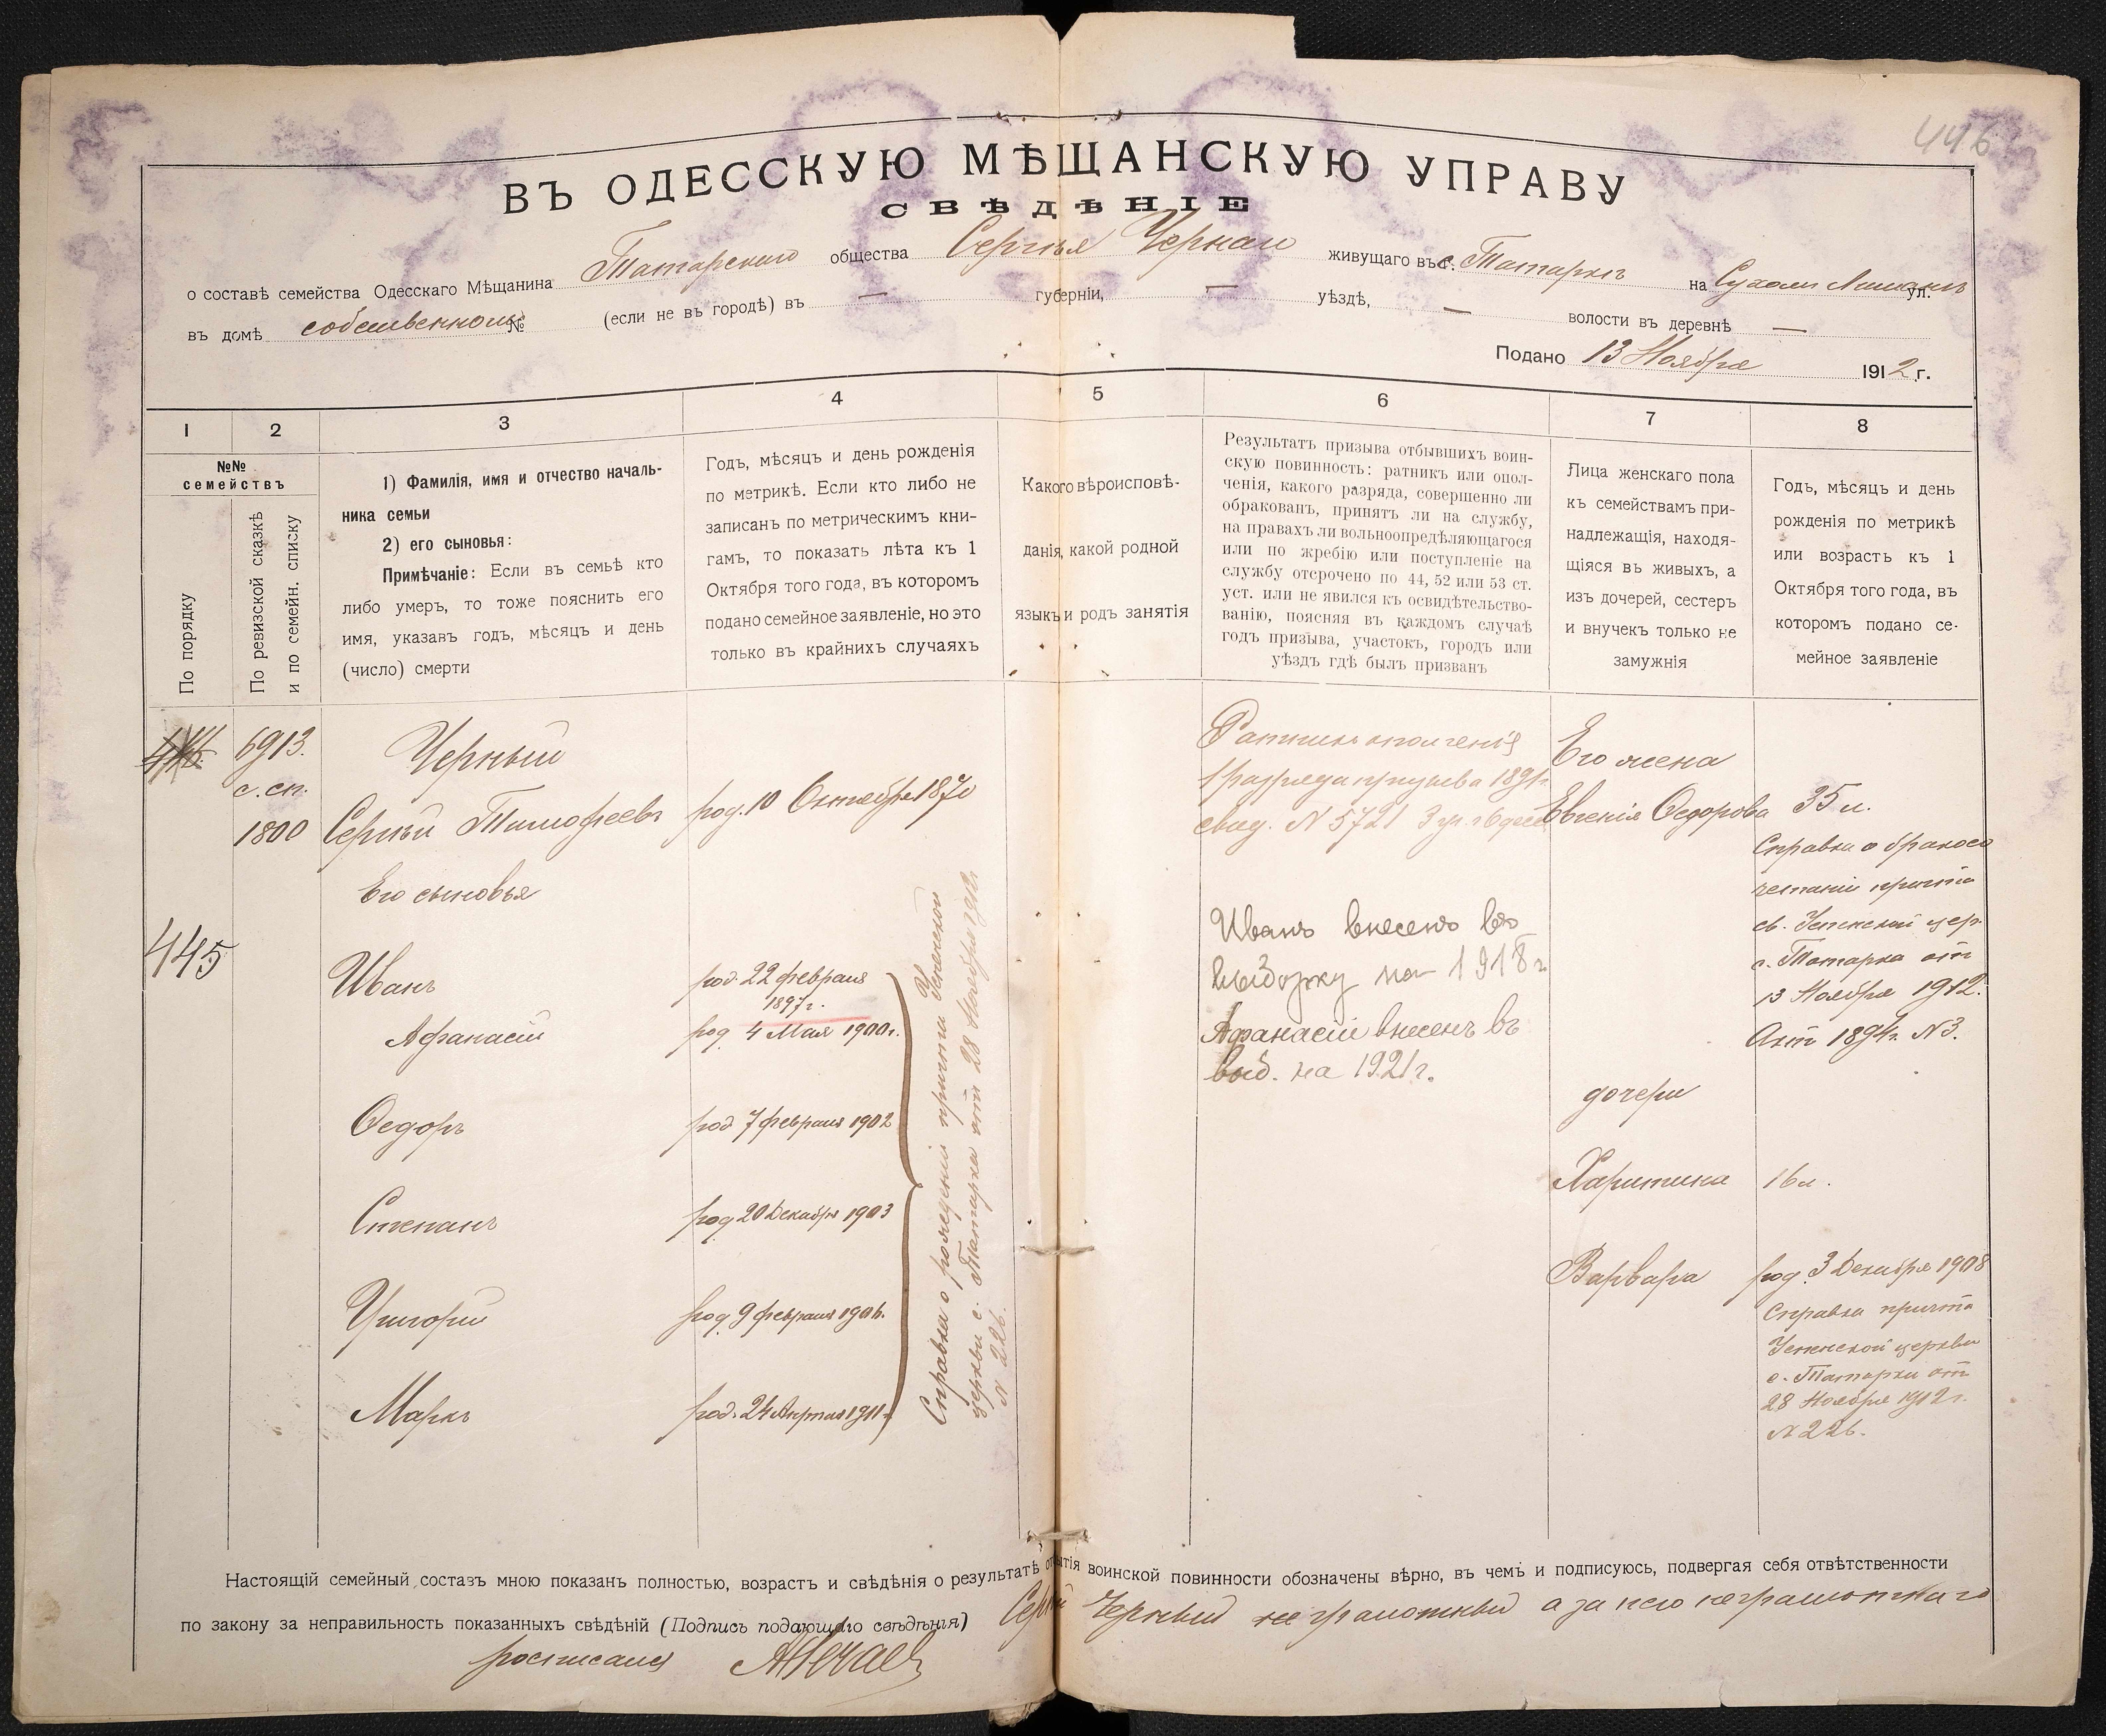 446
ВЪ ОДЕССКУЮ МѢЩАНСКУЮ УПРАВУ
СВѢДѢНІЕ
о составѣ семейства Одесскаго Мѣщанина Татарскаго общества Сергѣя Чернаго живущаго въ с. Татаркѣ на Сухомъ Лиманѣ ул.
въ домѣ собственномъ № (если не въ городѣ) въ — губерніи, — уѣздѣ, — волости въ деревнѣ —
Подано 13 Ноября 1912 г.
1 2 3 4 5 6 7 8
№№ семействъ
По порядку
По ревизской сказкѣ
и по семейн. списку
1) Фамилія, имя и отчество началь-
ника семьи
2) его сыновья:
Примѣчаніе: Если въ семьѣ кто
либо умеръ, то тоже пояснить его
имя, указавъ годъ, мѣсяцъ и день
(число) смерти
Годъ, мѣсяцъ и день рожденія
по метрикѣ. Если кто либо не
записанъ по метрическимъ кни-
гамъ, то показать лѣта къ 1
Октября того года, въ которомъ
подано семейное заявленіе, но это
только въ крайнихъ случаяхъ
Какого вѣроисповѣ-
данія, какой родной
языкъ и родъ занятія
Результатъ призыва отбывшихъ воин-
скую повинность: ратникъ или опол-
ченія, какого разряда, совершенно ли
обракованъ, принятъ ли на службу,
на правахъ ли вольноопредѣляющагося
или по жребію или поступленіе на
службу отсрочено по 44, 52 или 53 ст.
уст. или не явился къ освидѣтельство-
ванію, поясняя въ каждомъ случаѣ
годъ призыва, участокъ, городъ или
уѣздъ гдѣ былъ призванъ
Лица женскаго пола
къ семействамъ при-
надлежащія, находя-
щіяся въ живыхъ, а
изъ дочерей, сестеръ
и внучекъ только не
замужнія
Годъ, мѣсяцъ и день
рожденія по метрикѣ
или возрастъ къ 1
Октября того года, въ
которомъ подано се-
мейное заявленіе
6913.
с. сп.
1800
445
Черный
Сергѣй Тимофеевъ
род. 10 Октября 1870
Его сыновья
Иванъ
род. 22 февраля
1897 г.
Афанасій
род 4 Мая 1900 г.
Ѳедоръ
род 7 февраля 1902
Степанъ
род 20 Декабря 1903
Григорій
род 9 февраля 1906.
Маркъ
род. 24 Апреля 1911 г
Справка о рожденіи причта Успенской
церкви с. Татарка отъ 28 Ноября 1912 г.
N 226.
Ратникъ ополченія
1 разряда призыва 1891 г.
свид. N 5721 3 уч. г Одессы
Иванъ внесенъ въ
выборку на 1918 г
Афанасій внесенъ въ
выб. на 1921 г.
Его жена
Евгенія Ѳедорова
35 л.
Справка о бракосо
четаніи причта
св. Успенской цер.
с. Татарка отъ
13 Ноября 1912.
Актъ 1894 г. N 3.
дочери
Харитина
16 л.
Варвара
род 3 Декабря 1908
Справка причта
Успенской церкви
с. Татарки отъ
28 Ноября 1912 г.
N 226.
Настоящій семейный составъ мною показанъ полностью, возрастъ и свѣдѣнія о результатѣ отбытія воинской повинности обозначены вѣрно, въ чемъ и подписуюсь, подвергая себя отвѣтственности
по закону за неправильность показанныхъ свѣдѣній (Подпись подающаго свѣдѣнія) Сергѣй Черный не грамотный а за него неграмотнаго
росписался АНечаевъ